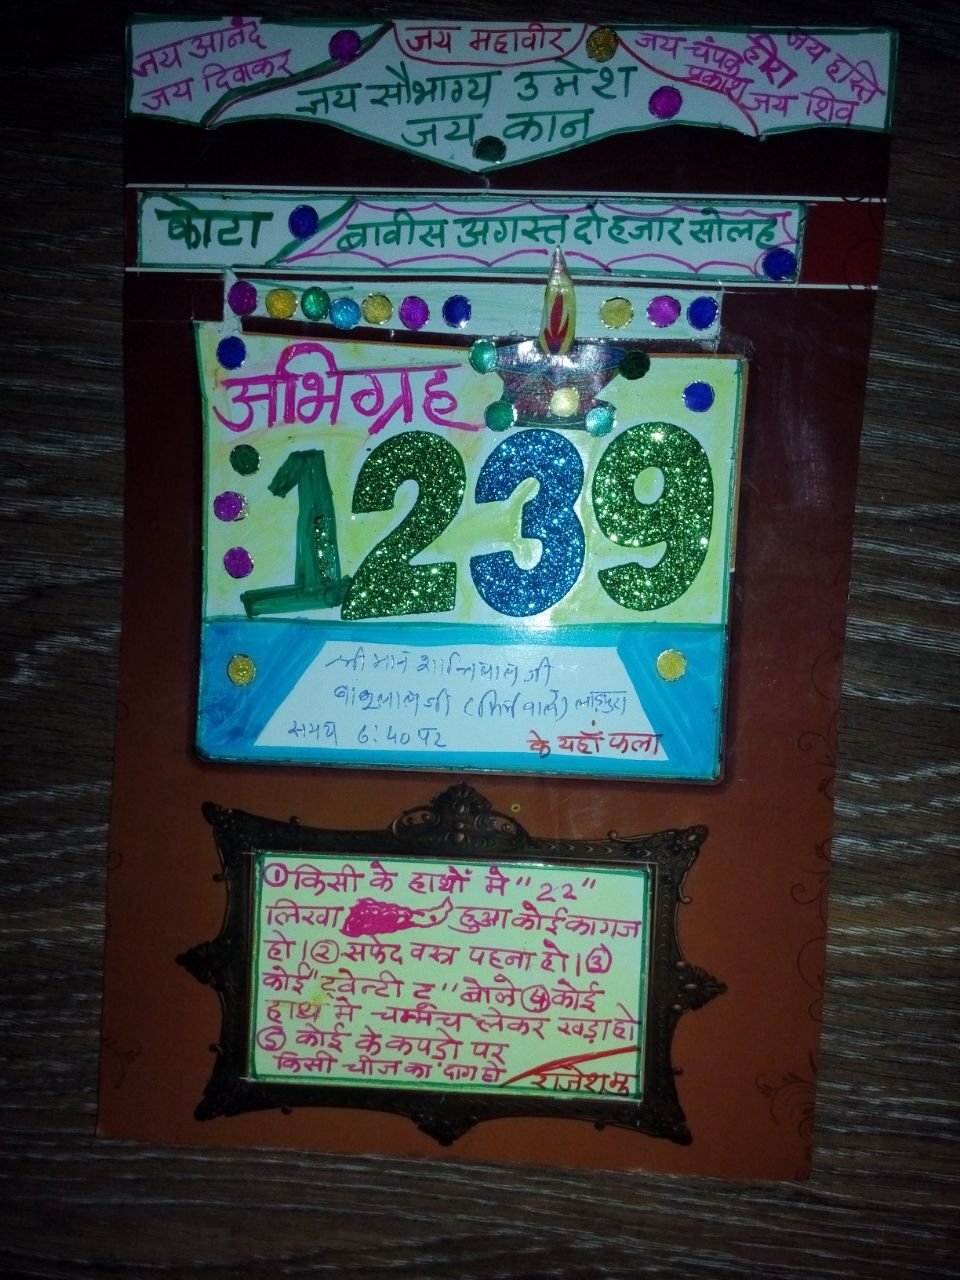 जय आनंद
जय दिवाकर
जय महावीर
जय सौभाग्य उमेश
जय कान
जय चंपक
हीरा
प्रकाश
जय हस्ति
जय शिव
कोटा
बावीस अगस्त दो हजार सोलह
अभिग्रह
1239
श्री मान शान्तिलाल जी
बाबूलाल जी लाडपुरा
समय 6:40 पर
के यहाँ फला
① किसी के हाथों मे "22"
लिखा हुआ कोई कागज
हो। ② सफेद वस्त्र पहना हो। ③
कोई "ट्वेन्टी टू" बोले ④ कोई
हाथ मे चम्मच लेकर खड़ा हो
⑤ कोई के कपड़ो पर
किसी चीज का दाग हो
राजेश मु